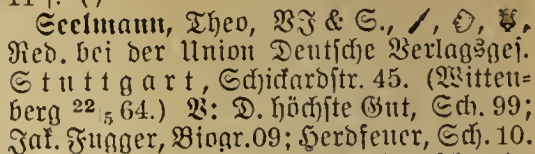 Seelmann, Theo, VJ & S.,
Red. bei der Union Deutsche Verlagsges.
Stuttgart, Schickardstr. 45. (Witten=
berg 22/5 64.) V: D. höchste Gut, Sch. 99;
Jak. Fugger, Biogr. 09; Herdfeuer, Sch. 10.